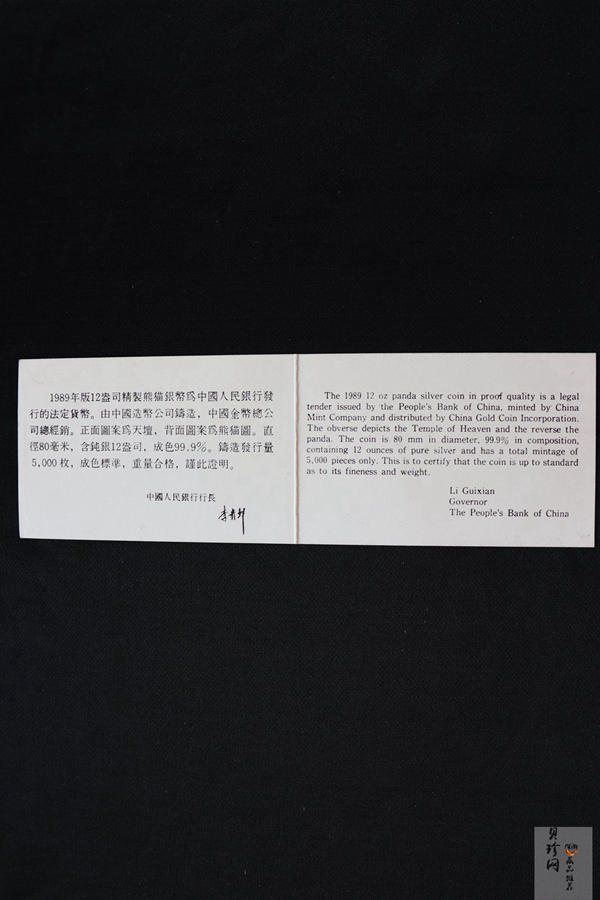 1989年版12盎司精製熊猫銀幣爲中國人民銀行發
行的法定貨幣。由中國造幣公司鑄造，中國金幣總公
司總經銷。正面圖案爲天壇，背面圖案爲熊猫圖。直
徑80毫米，含純銀12盎司，成色99.9%。鑄造發行量
5,000枚，成色標準，重量合格，謹此證明。
中國人民銀行行長
李貴鮮
The 1989 12 oz panda silver coin in proof quality is a legal
tender issued by the People's Bank of China, minted by China
Mint Company and distributed by China Gold Coin Incorporation.
The obverse depicts the Temple of Heaven and the reverse the
panda. The coin is 80 mm in diameter, 99.9% in composition,
containing 12 ounces of pure silver and has a total mintage of
5,000 pieces only. This is to certify that the coin is up to standard
as to its fineness and weight.
Li Guixian
Governor
The People's Bank of China
貝珍网